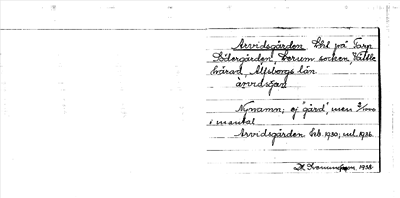 Arvidsgården, Lht på Torp
Södergården, Lerum socken, Vättle
härad, Älfsborgs län
arvidsgan
Nynamn; ej 'gård', men
i mantal
Arvidsgården Leb. 1930; uul. 1936.
1938